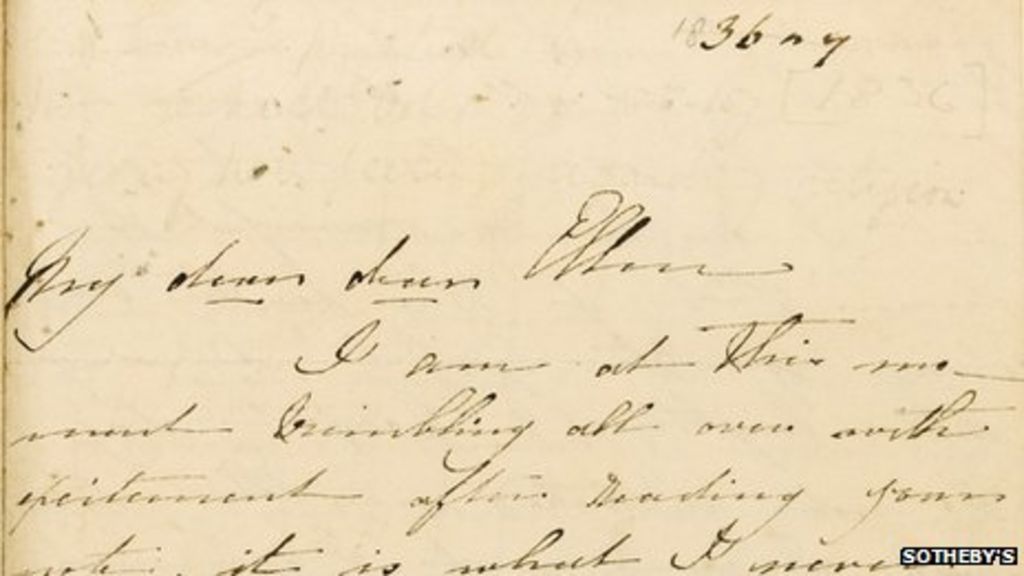 1836
My dear dear Ellen
I am at this mo-
ment trembling all over with
excitement after reading your
note, it is what I never
SOTHEBY'S